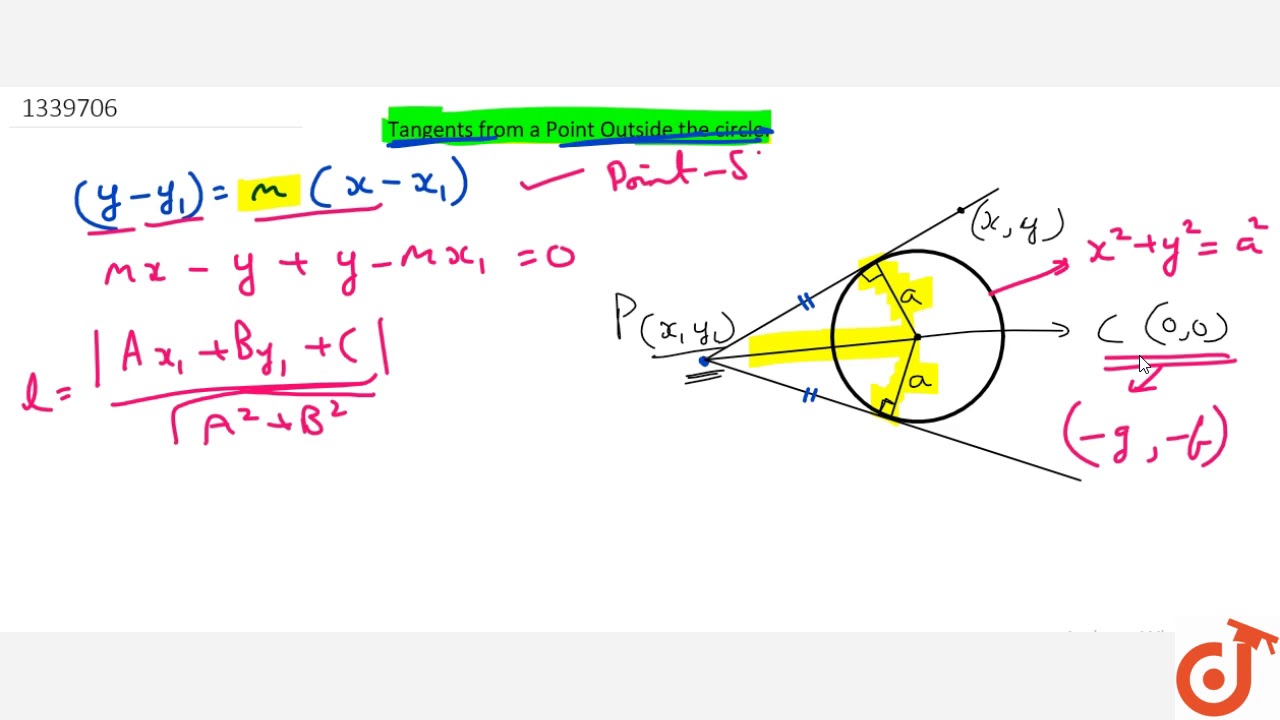 1339706
Tangents from a Point Outside the circle.
(y-y₁) = m (x-x₁)
Point-S
mx - y + y - mx₁ = 0
l = |Ax₁ + By₁ + C| / √A² + B²
(x, y)
x² + y² = a²
P(x₁ y₁)
a
a
C (0,0)
(-g, -f)